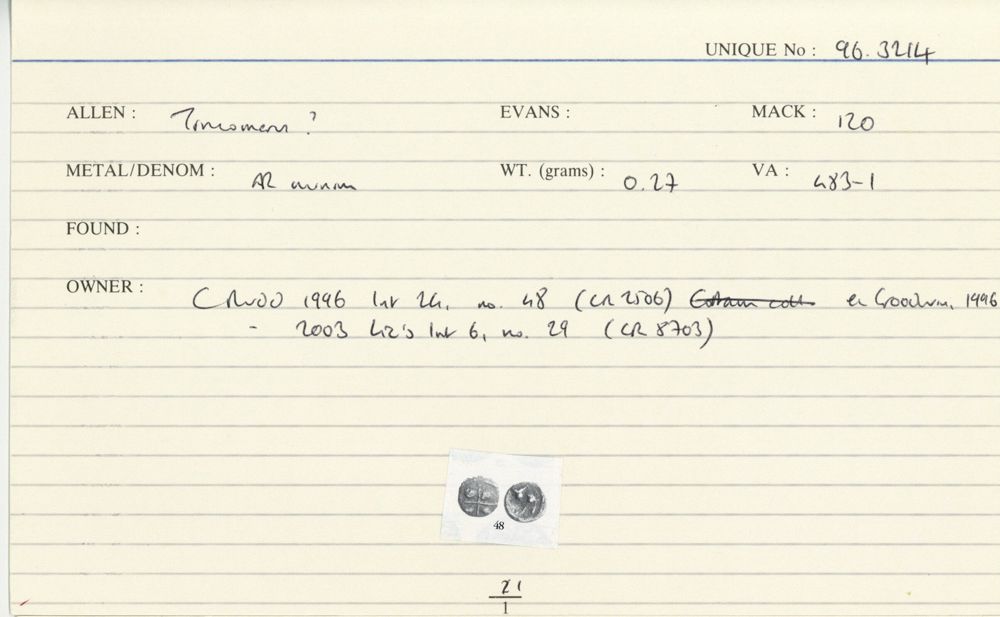 UNIQUE No : 96.3214
ALLEN : ? EVANS : MACK : 120
METAL/DENOM : AR minim WT. (grams) : 0.27 VA : 483-1
FOUND :
OWNER : CRUDD 1996 list 24, no. 48 (CR 2506) ex Goodwin, 1996
- 2003 Liz's list 6, no. 29 (CR 8703)
48
21
1